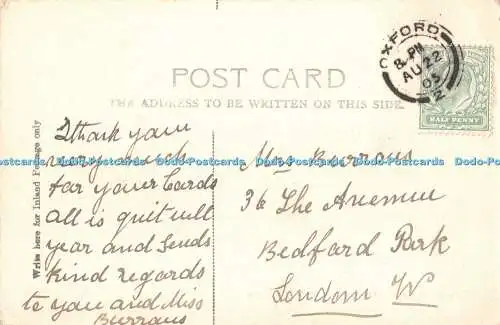 OXFORD
8 PM
AU 22
03
2
HALF PENNY
POST CARD
THE ADDRESS TO BE WRITTEN ON THIS SIDE.
Write here for Inland Postage only
I thank you
very much
for your Cards
all is quit will
year and sends
kind regards
to you and Miss
Burrows
Burrows
36 The Avenue
Bedford Park
London W
Dodo-Postcards Dodo-Postcards Dodo-Postcards Dodo-Postcards Dodo-Postcards